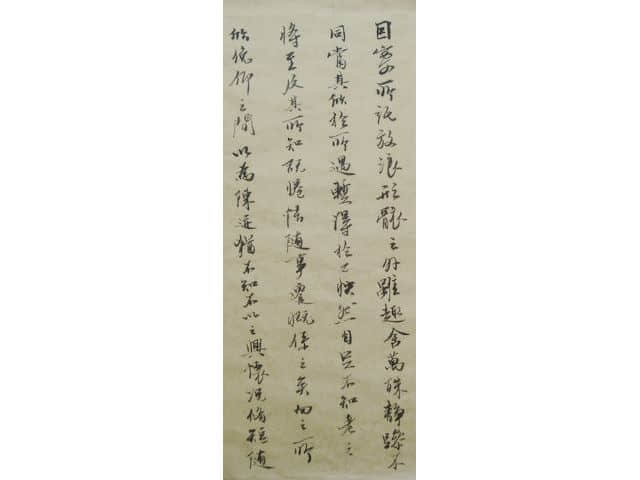 因寄所託放浪形骸之外雖趣舍萬殊靜躁不
同當其欣於所遇暫得於己快然自足不知老之
將至及其所知既惓情隨事遷慨係之矣向之所
欣俛仰之間以為陳迹猶不知不以之興懷況脩短隨